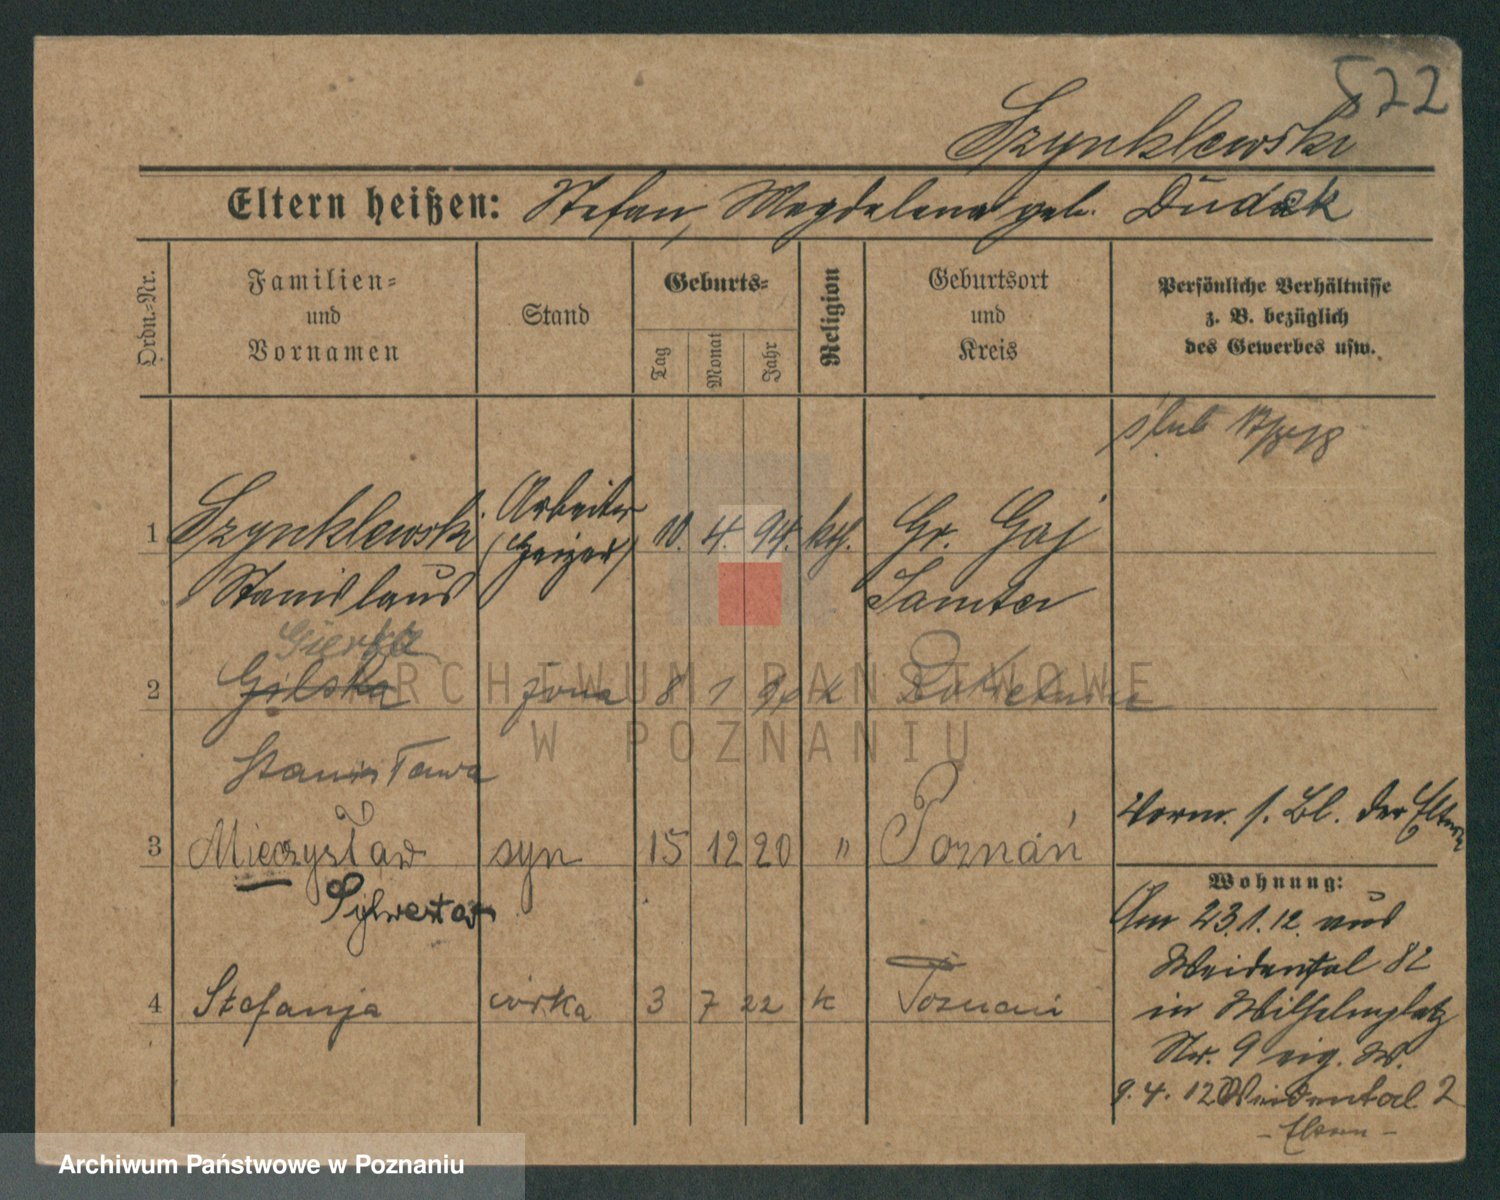 522
Szynklewski
Eltern heißen: Stefan, Magdalena geb. Dudek
Ordn.-Nr.
Familien-
und
Vornamen
Stand
Geburts-
Tag
Monat
Jahr
Religion
Geburtsort
und
Kreis
Persönliche Verhältnisse
z. B. bezüglich
des Gewerbes usw.
ślub
1 Szynklewski Arbeiter 10. 4. 94. kth. Gr. Gaj
Stanislaus (Heizer) Samter
Gierka
2 Gilska żona 8 1 K Rokietnica
Stanisława
Vorm. s. Bl. der Eltern
3 Mieczysław syn 15 12 20 " Poznań
Sylwester
4 Stefanja córka 3 7 22 k Poznań
Wohnung:
Am 23.1.12. aus
Weidental 82
in Wilhelmplatz
Nr. 9 eig. W.
9. 4. 12 Weidental 2
- Eltern -
ARCHIWUM PAŃSTWOWE
W POZNANIU
Archiwum Państwowe w Poznaniu